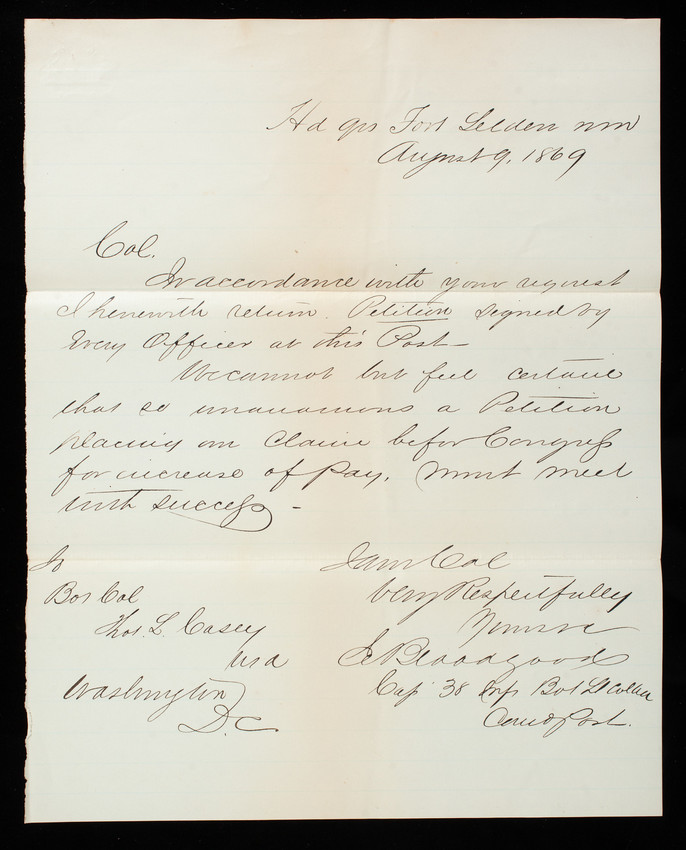 Hd qrs Fort Selden NM
August 9, 1869
Col.
In accordance with your request
I herewith return Petition signed by
Every Officer at this Post—
We cannot but feel certain
that so unanimous a Petition
placing our Claim before Congress
for increase of Pay, must meet
with success —
To
Bvt Col
Thos. L. Casey
USA
Washington
D.C
I am Col
Very Respectfully
Yours
E Bloodgood
Cap 38 Inf Bvt Lt Col USA
Comd Post.